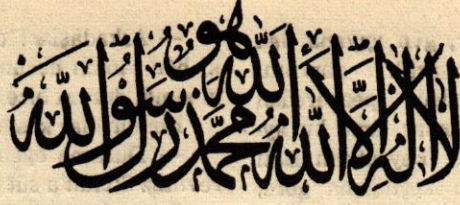 لَا إِلٰهَ إِلَّا اللّٰهُ اللّٰه هُو مُحَمَّد رَسُولُ اللّٰهِ